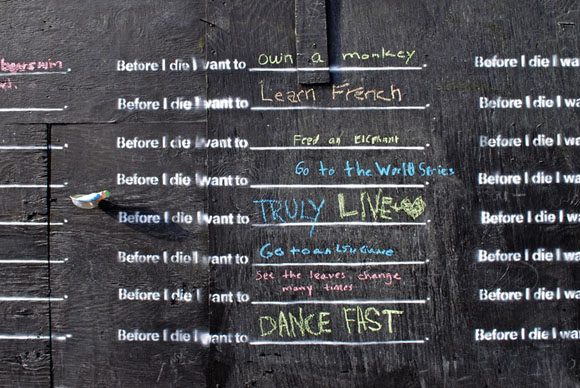 bears win.
Before I die I want to own a monkey.
Before I die I wa
Before I die I want to Learn French.
Before I die I wa
Before I die I want to Feed an Elephant.
Before I die I wa
Before I die I want to Go to the World Series
Before I die I wa
Before I die I want to TRULY LIVE.
Before I die I wa
Before I die I want to Go to an
Before I die I wa
Before I die I want to See the leaves change many times.
Before I die I wa
Before I die I want to DANCE FAST.
Before I die I wa